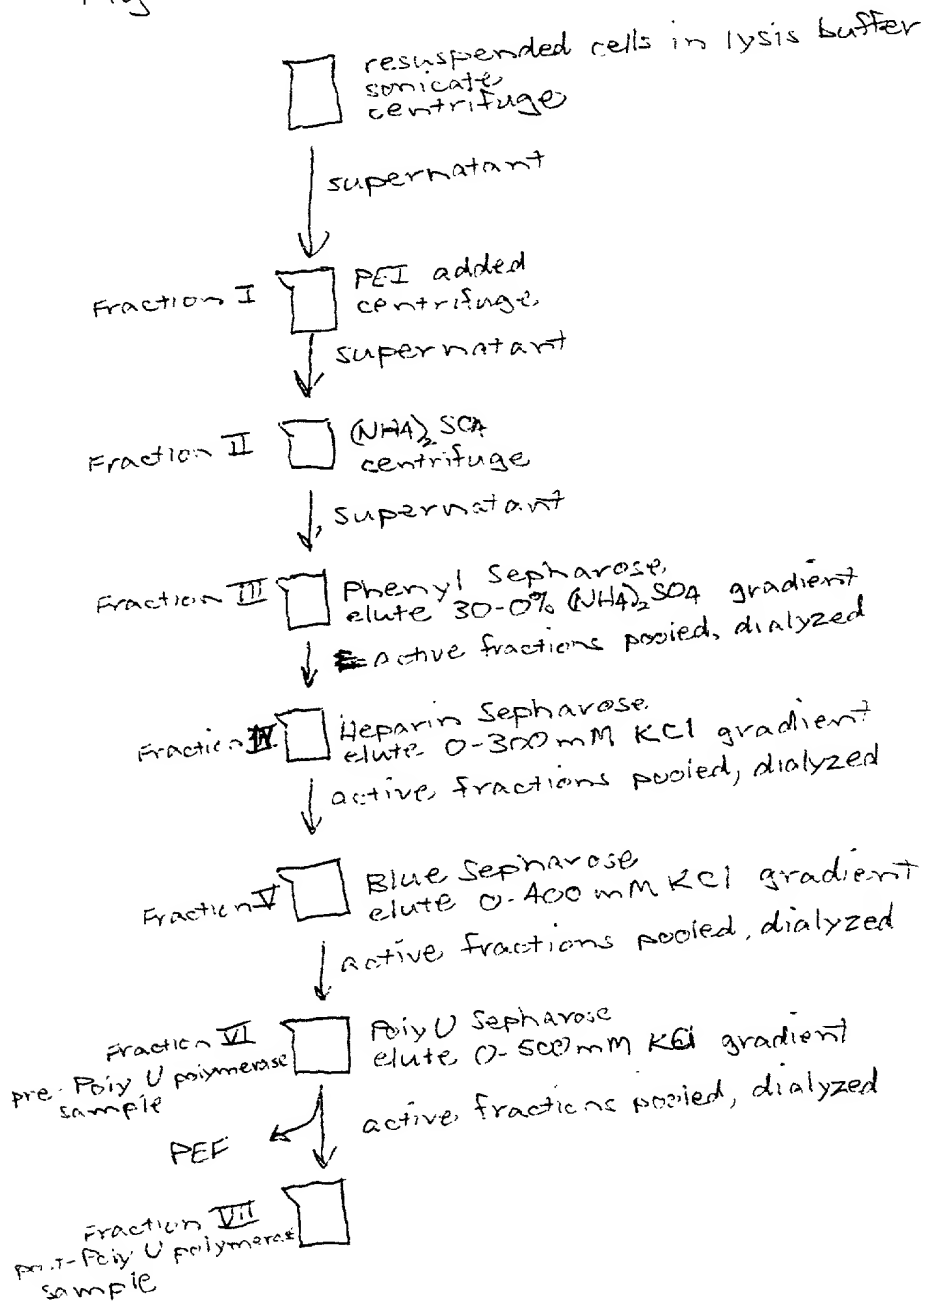 Fig
resuspended cells in lysis buffer
sonicate
centrifuge
supernatant
Fraction I
PEI added
centrifuge
supernatant
Fraction II
(NH4)2 SO4
centrifuge
supernatant
Fraction III
Phenyl Sepharose
elute 30-0% (NH4)2 SO4 gradient
active fractions pooled, dialyzed
Fraction IV
Heparin Sepharose
elute 0-300 mM KCl gradient
active fractions pooled, dialyzed
Fraction V
Blue Sepharose
elute 0-400 mM KCl gradient
active fractions pooled, dialyzed
Fraction VI
pre-Poly U polymerase
sample
Poly U Sepharose
elute 0-500 mM KCl gradient
active fractions pooled, dialyzed
PEF
Fraction VII
post-Poly U polymerase
sample